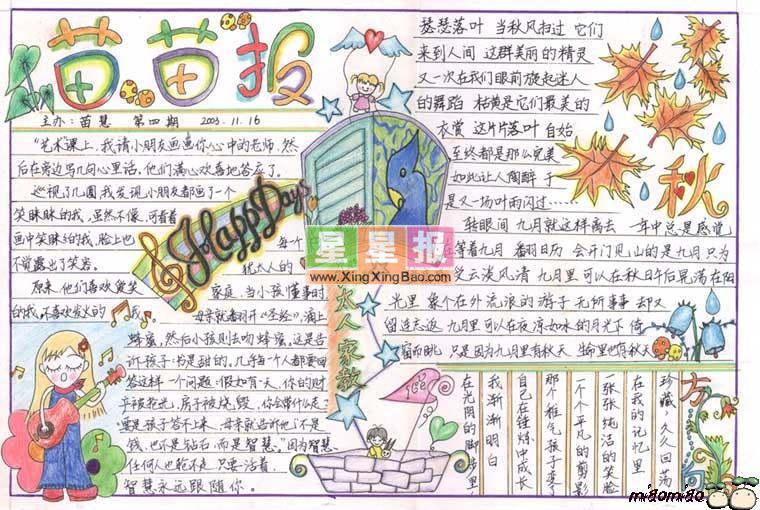 苗苗报
主办：苗慧 第四期 2003.11.16
"艺术"课上，我请小朋友画画你心中的老师，然
后在旁边写几句心里话，他们满心欢喜地答应了。
巡视了几圈，我发现小朋友都画了一个
笑眯眯的我，虽然不像，可看着
画中笑眯眯的我，脸上也
不觉露出了笑容。
原来，他们喜欢微笑
的我，不喜欢发火的我。
Happy Days
每个
犹太人的
家庭，当小孩懂事时，
母亲就翻开《圣经》，滴上
蜂蜜，然后小孩则去吻蜂蜜。这是告
许孩子：书是甜的。几乎每个人都要回
答这样一个问题：假如有一天，你的财
产被抢光，房子被烧毁，你会带什么走？
要是孩子答不上来，母亲就告诉他："不是
钱，也不是钻石，而是智慧。"因为智慧，
任何人也抢不走，只要活着，
智慧永远跟随你。
太人家教
瑟瑟落叶 当秋风扫过 它们
来到人间 这群美丽的精灵
又一次在我们眼前旋起迷人
的舞蹈 枯黄是它们最美的
衣赏 这片片落叶 自始
至终都是那么完美
如此让人陶醉 于
是又一场叶雨闪过……
秋
转眼间 九月就这样离去 一年中总是感觉
在等着九月 翻开日历 会开门见山的是九月 只为
云淡风清 九月里 可以在秋日午后晃荡在阳
光里 像个在外流浪的游子 无所事事 却又
留连忘返 九月里 可以在夜凉如水的月光下 倚
窗而眺 只是因为九月里有秋天 生命里也有秋天
方向
珍藏，久久回荡
在我的记忆里
一张张纯洁的笑脸
一个个平凡的剪影
那个稚气孩子变了
自己在锤炼中成长
我渐渐明白
在光阴的脚步里
星星报
www.XingXingBao.com
miaomiao